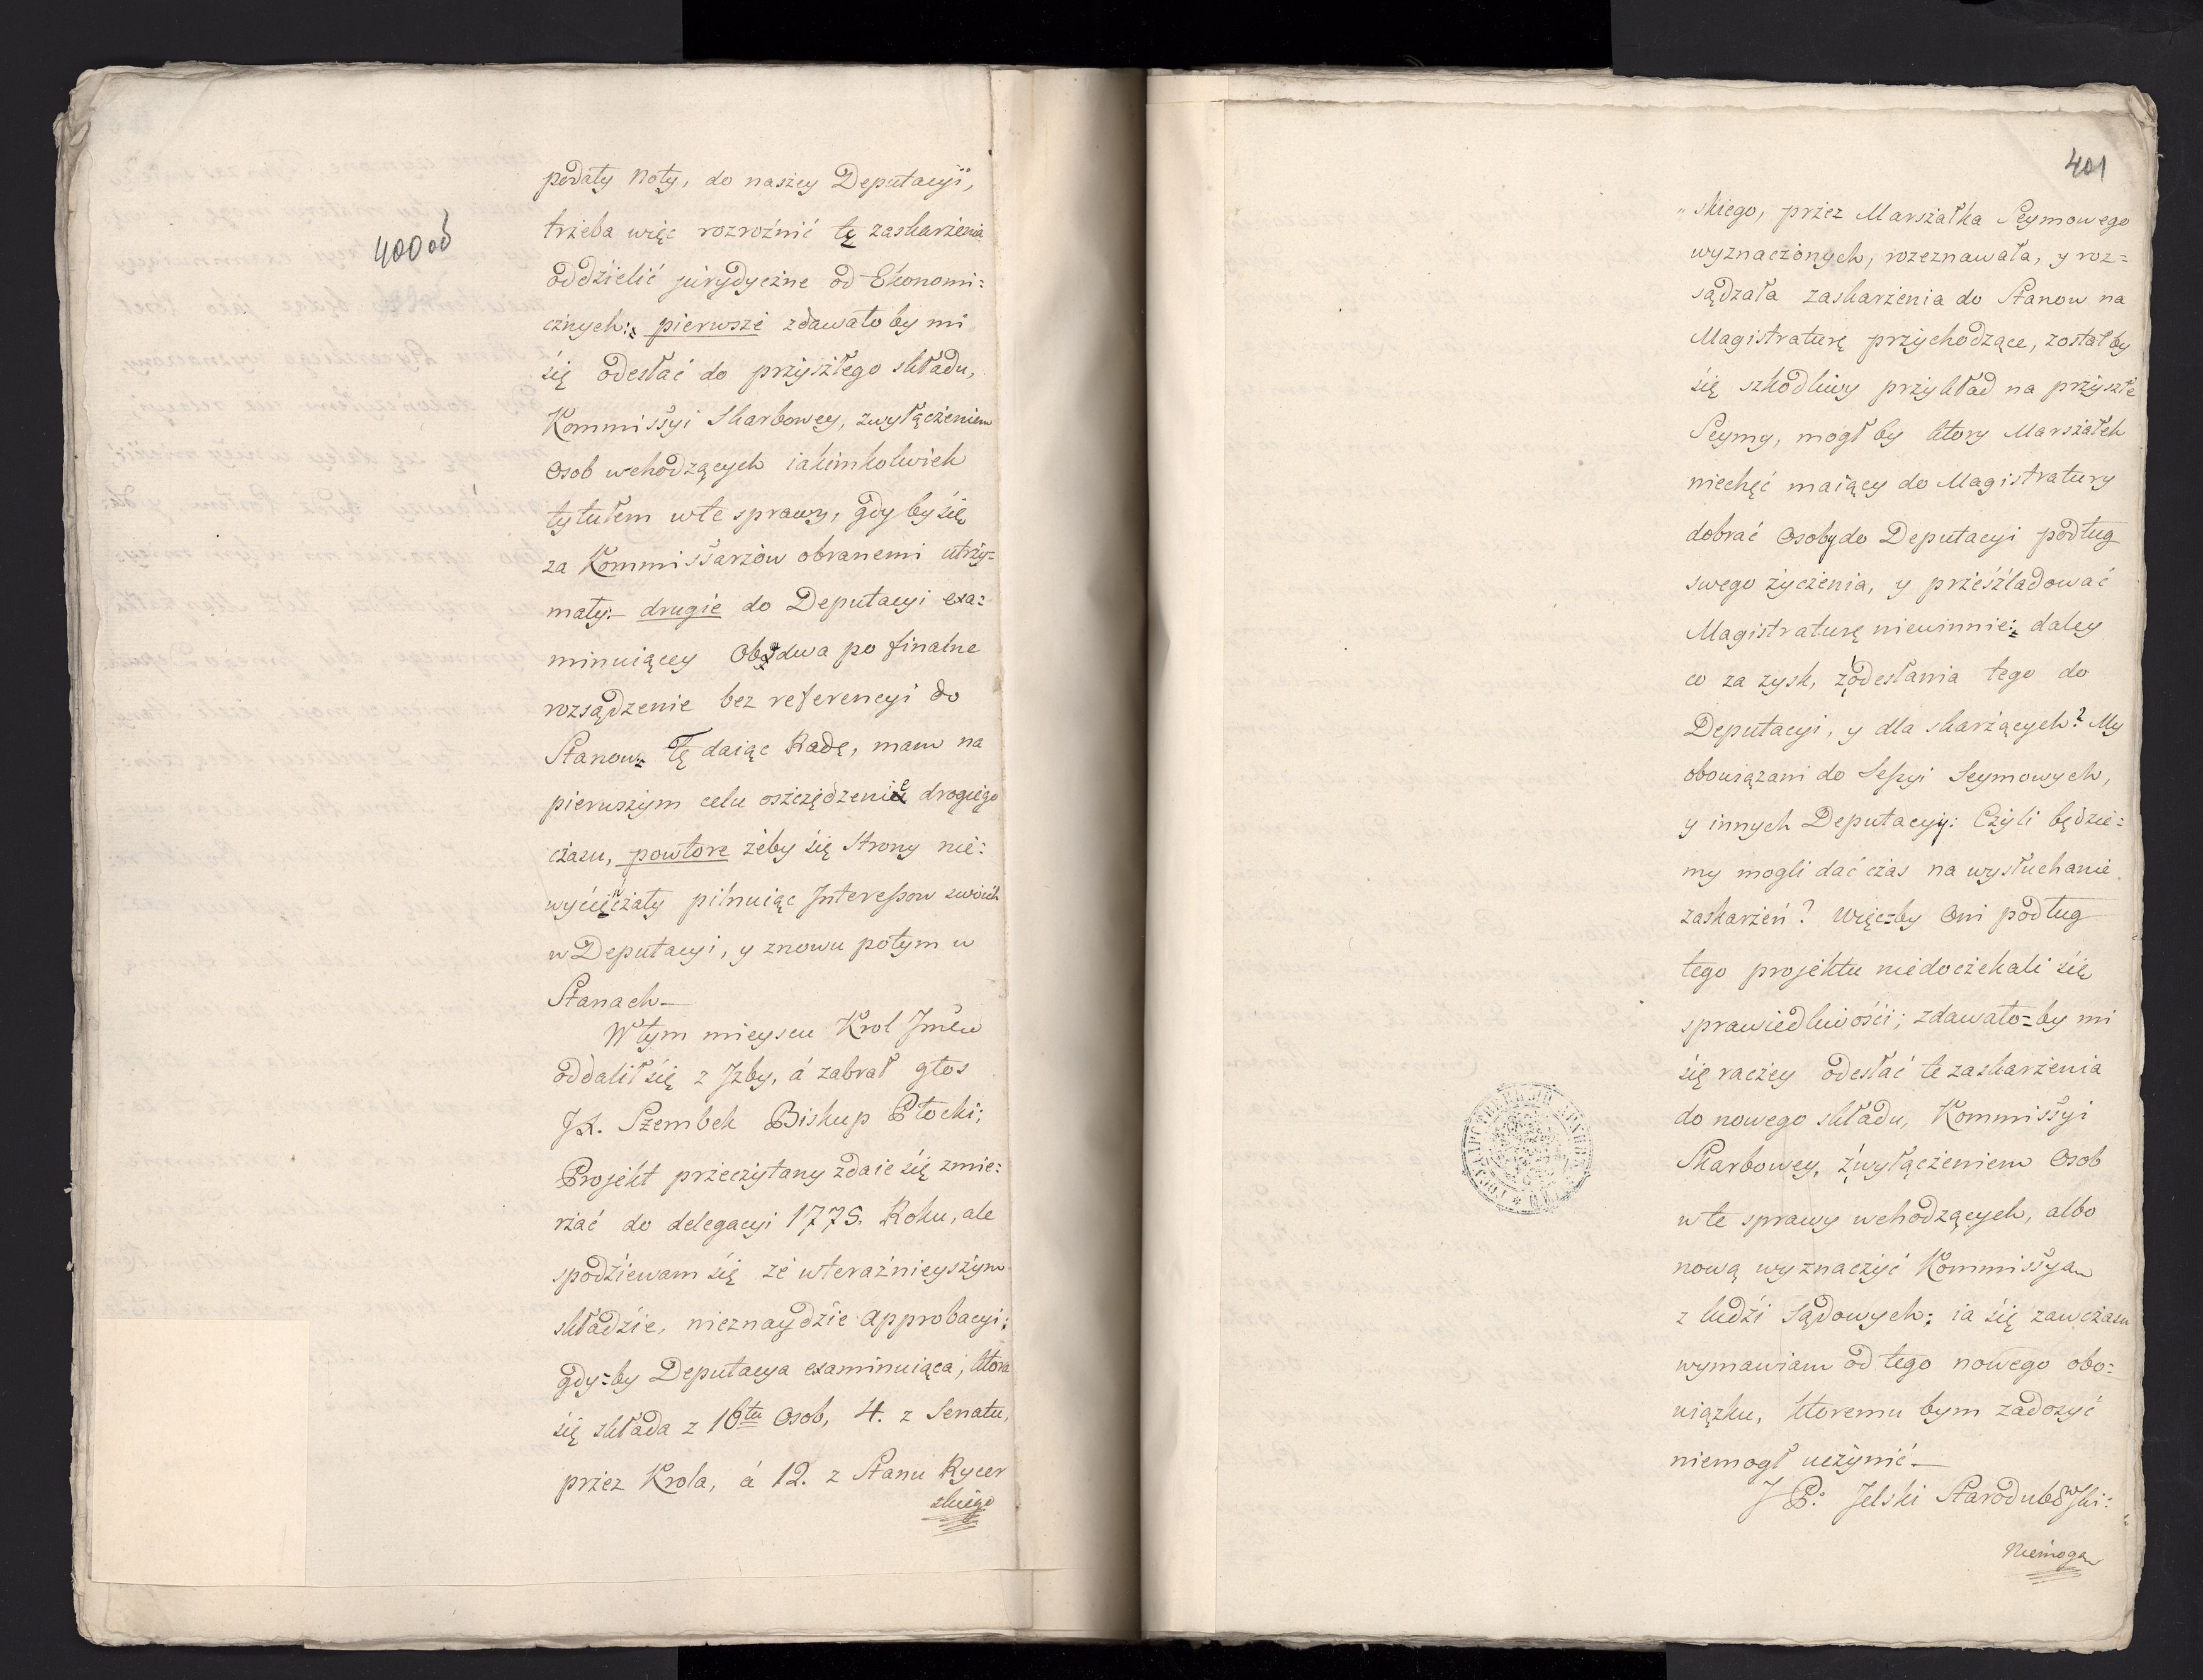 400 od
podały Noty, do naszey Deputacyi,
trzeba więc rozroźnić tę zaskarżenia
oddzielić jurydyczne od Ekonomi:
cznych: pierwsze zdawałoby mi
się odesłać do przyszłego składu,
Kommissyi Skarbowey, zwyłączeniem
Osob wchodzących iakimkolwiek
tytułem wte sprawy, gdy by się
za Kommissarzów obranemi utrzy=
mały: drugie do Deputacyi exa=
minuiącey Obodwa po finalne
rozsądzenie bez referencyi do
Stanow: Tę daiąc Radę, mam na
pierwszym celu oszczędzenie drogiego
czasu, powtore żeby się Strony nie:
wycięczały pilnuiąc Interessow swoich
w Deputacyi, y znowu potym w
Stanach —
W tym mieyscu Krol Jmść
oddalił się z Izby, á zabrał głos
JX. Szembek Biskup Płocki:
Projekt przeczytany zdaie się zmie:
rzać do delegacyi 1775. Roku, ale
spodziewam się że wteraznieyszym
składzie, nieznaydzie approbacyi:
gdy=by Deputacya examinuiąca, ktora
się składa z 16tu Osob, 4. z Senatu,
przez Krola, á 12. z Stanu Rycer
skiego
401
„skiego, przez Marszałka Seymowego
wyznaczonych, rozeznawała, y roz=
sądzała zaskarżenia do Stanow na
Magistraturę przychodzące, został by
się szkodliwy przykład na przyszłe
Seymy, mogł by ktory Marszałek
niechęć maiący do Magistratury
dobrać Osoby do Deputacyi podług
swego życzenia, y prześladować
Magistraturę niewinnie: daley
co za zysk, z odesłania tego do
Deputacyi, y dla skarżących? My
obowiązani do Sessyi Seymowych,
y innych Deputacyy: Czyli będzie=
my mogli dać czas na wysłuchanie
zaskarżeń? Więc=by Oni podług
tego projektu niedoczekali się
sprawiedliwości; zdawało=by mi
się raczey odesłać te zaskarżenia
do nowego składu, Kommissyi
Skarbowey, z wyłączeniem Osob
w te sprawy wchodzących, albo
nową wyznaczyć Kommissyą
z ludzi Sądowych: ia się zawczasu
wymawiam od tego nowego obo=
wiązku, ktoremu bym zadosyć
niemogł uczynić —
J P. Jelski Starodubowski:
Niemogą